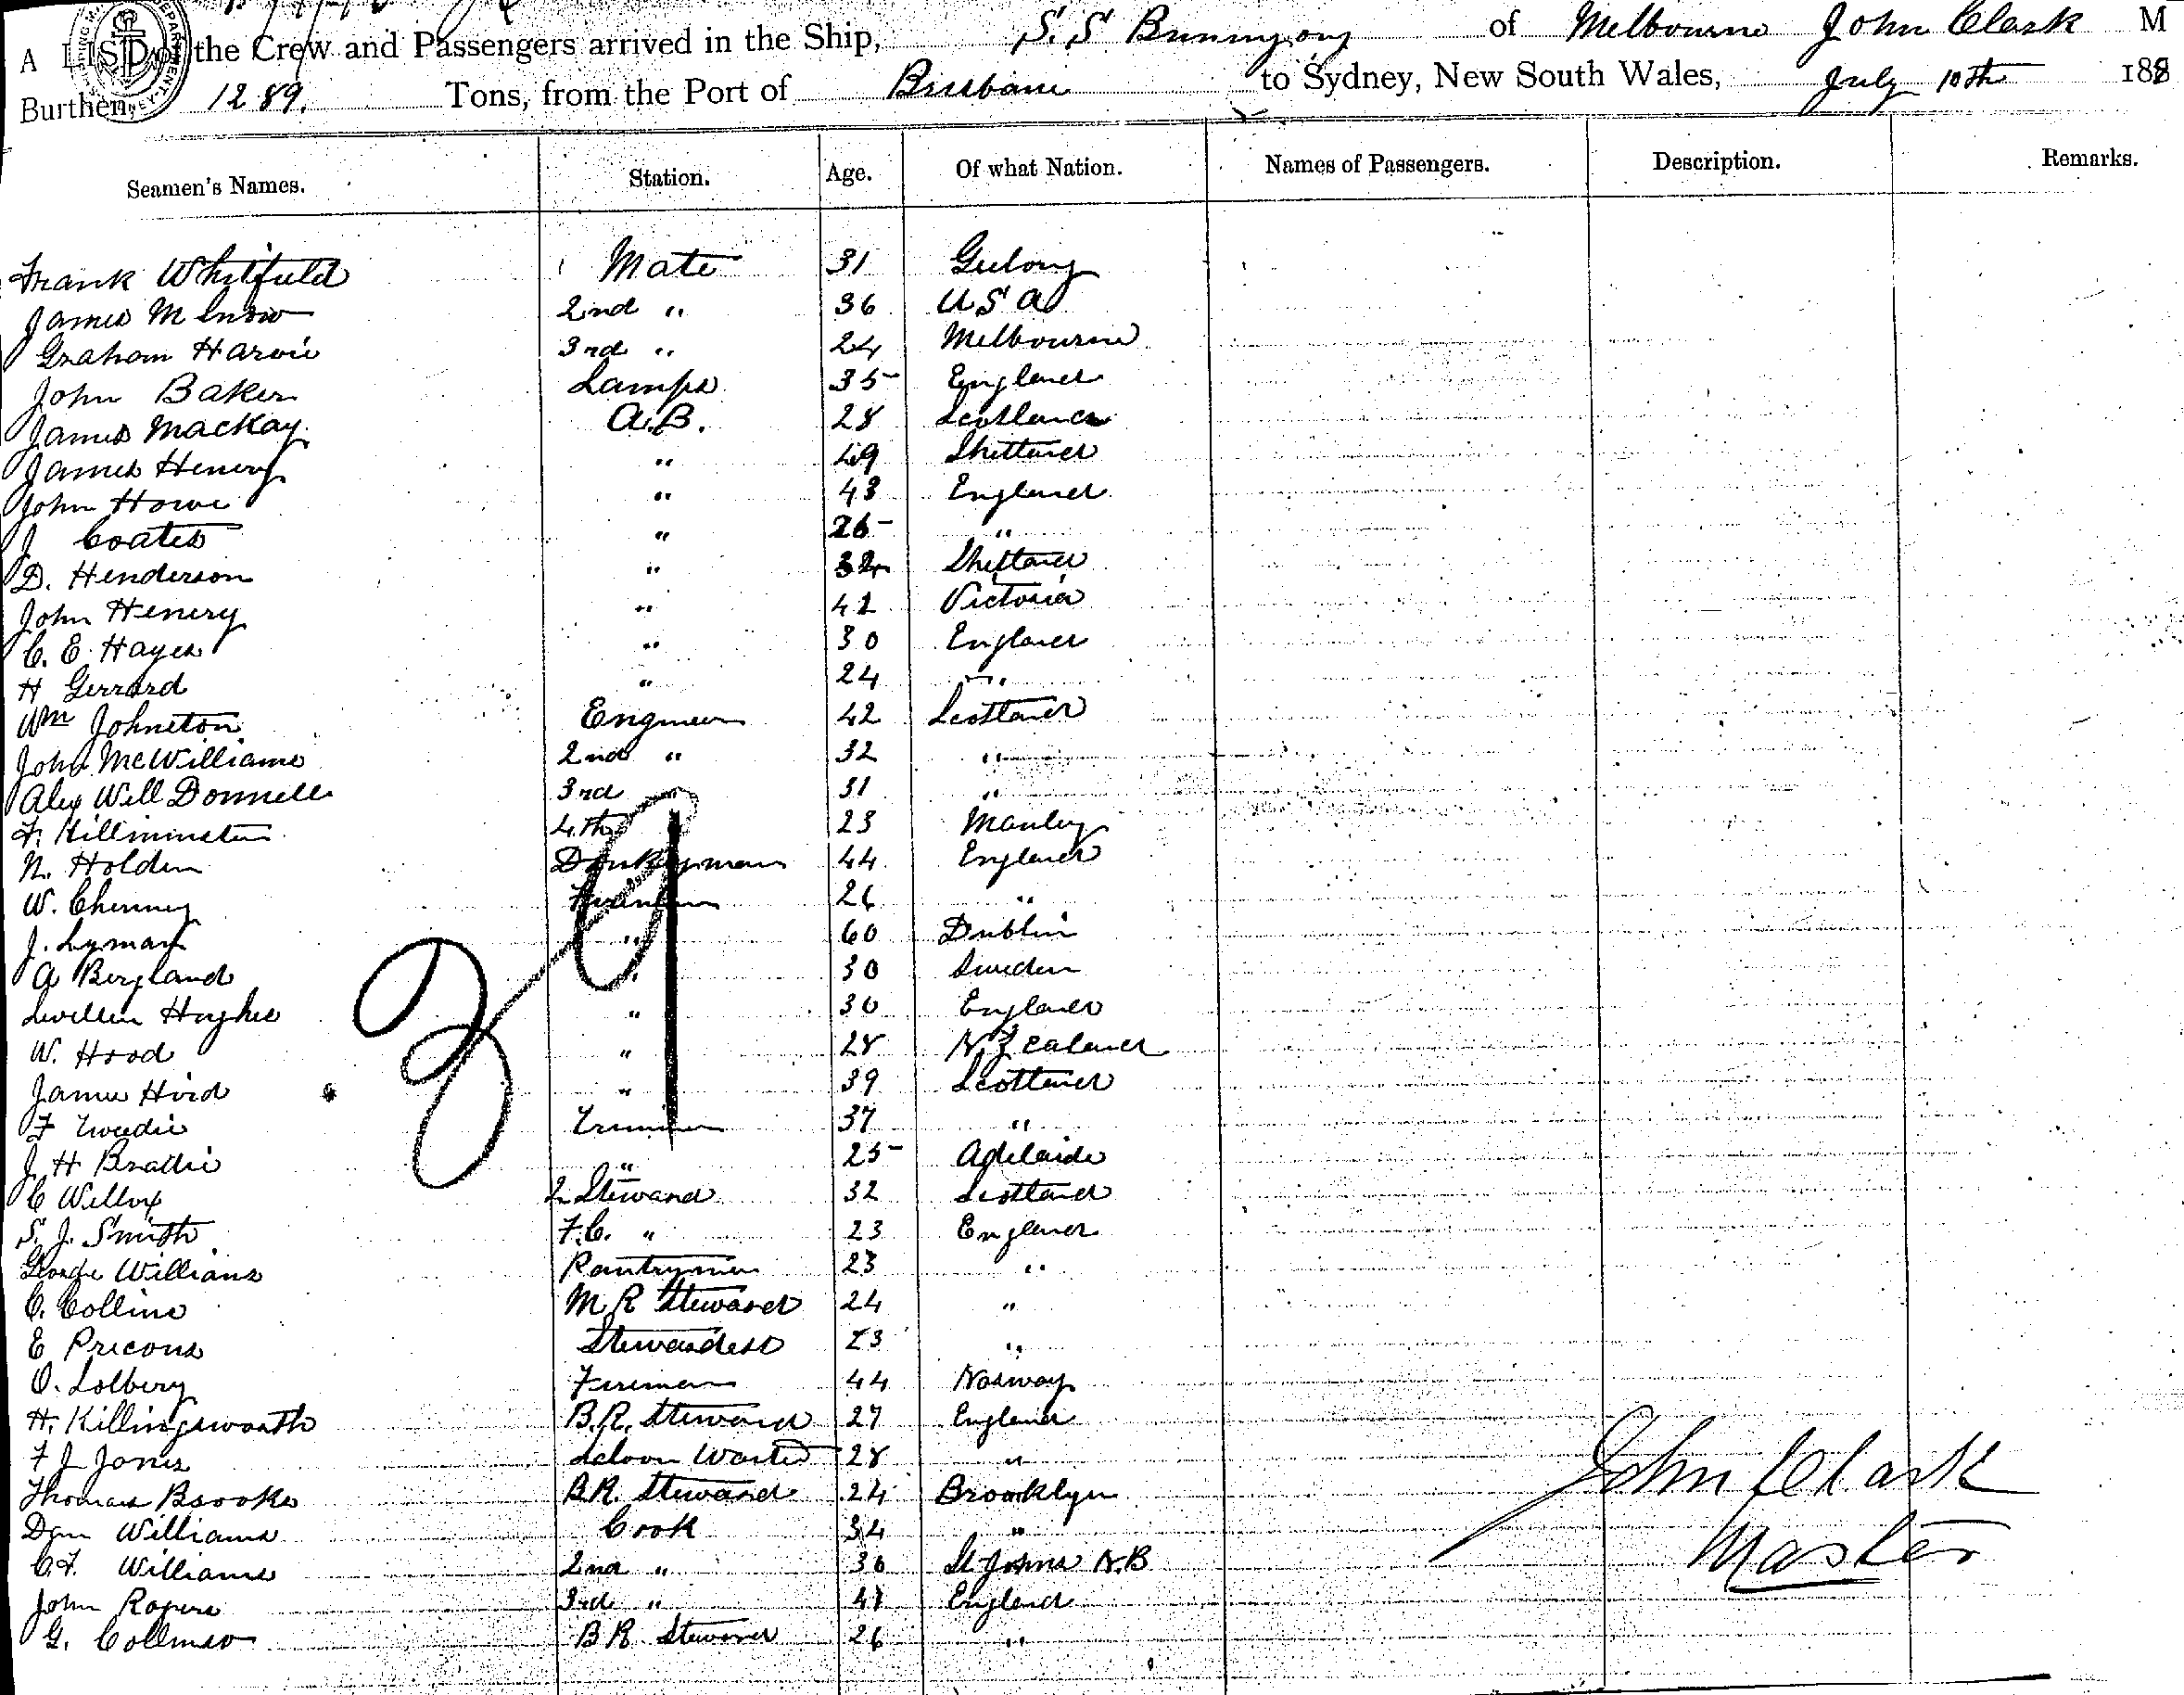 A LIST of the Crew and Passengers arrived in the Ship, S.S. Buninyong of Melbourne John Clark M
Burthen, 1289. Tons, from the Port of Brisbane to Sydney, New South Wales, July 10th 188
Seamen's Names. Station. Age. Of what Nation. Names of Passengers. Description. Remarks.
Frank Whitfield Mate 31 Geelong
James M Snow 2nd " 36 U S A
Graham Harvie 3rd " 24 Melbourne
John Baker Lamps 35 England
James Mackay A.B. 28 Scotland
James Henery " 49 Shetland
John Howe " 43 England
J Coates " 26 "
D. Henderson " 32 Shetland
John Henery " 42 Victoria
C. E. Hayes " 30 England
H Gerrard " 24 "
Wm Johnston Engineer 42 Scotland
John McWilliams 2nd " 32 "
Alex Will Donnell 3rd 31 "
F. Killminster 4th 23 Manley
N. Holden Donkeyman 44 England
W. Cherney Fireman 26 "
J. Lyman " 60 Dublin
A Bergland " 30 Sweden
Lwellin Hughes " 30 England
W. Hood " 28 N. Zealand
James Hird " 39 Scotland
F Tweedie Trimmer 37 "
J H Brattie " 25 Adelaide
C Willox 2 Steward 32 Scotland
S. J. Smith F.C. " 23 England
George Williams Pantryman 23 "
C. Collins M R Steward 24 "
E Precons Stewardess 23 "
O. Solberg Fireman 44 Norway
H. Killingsworth B.R. Steward 27 England
F J Jones Saloon Waiter 28 "
Thomas Brooks B.R. Steward 24 Brooklyn
Dan Williams Cook 34 "
C.F. Williams 2nd " 36 St Johns N.B
John Rogers 3rd " 41 England
G. Collman B R Steward 26 "
John Clark
Master